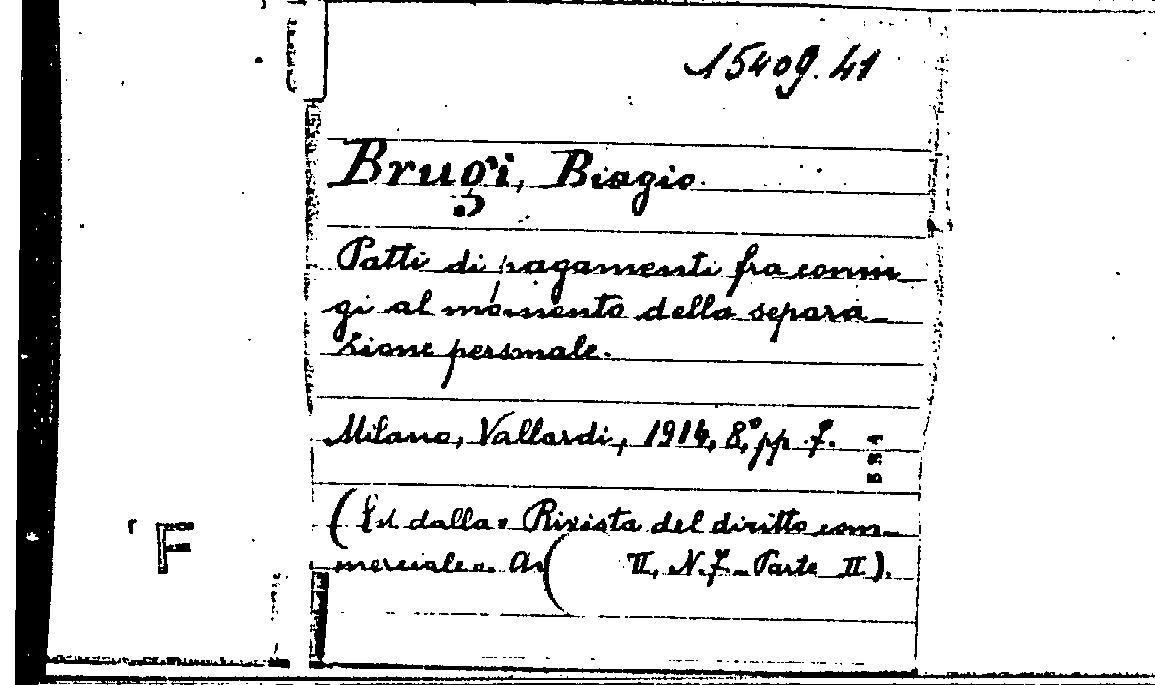 15409.41
Brugi, Biagio.
Patti di pagamenti fra coniu
gi al momento della separa-
zione personale.
Milano, Vallardi, 1914, 8°, pp. 7.
551
(Est. dalla « Rivista del diritto com-
merciale ». An II, N. 7 - Parte II).
F